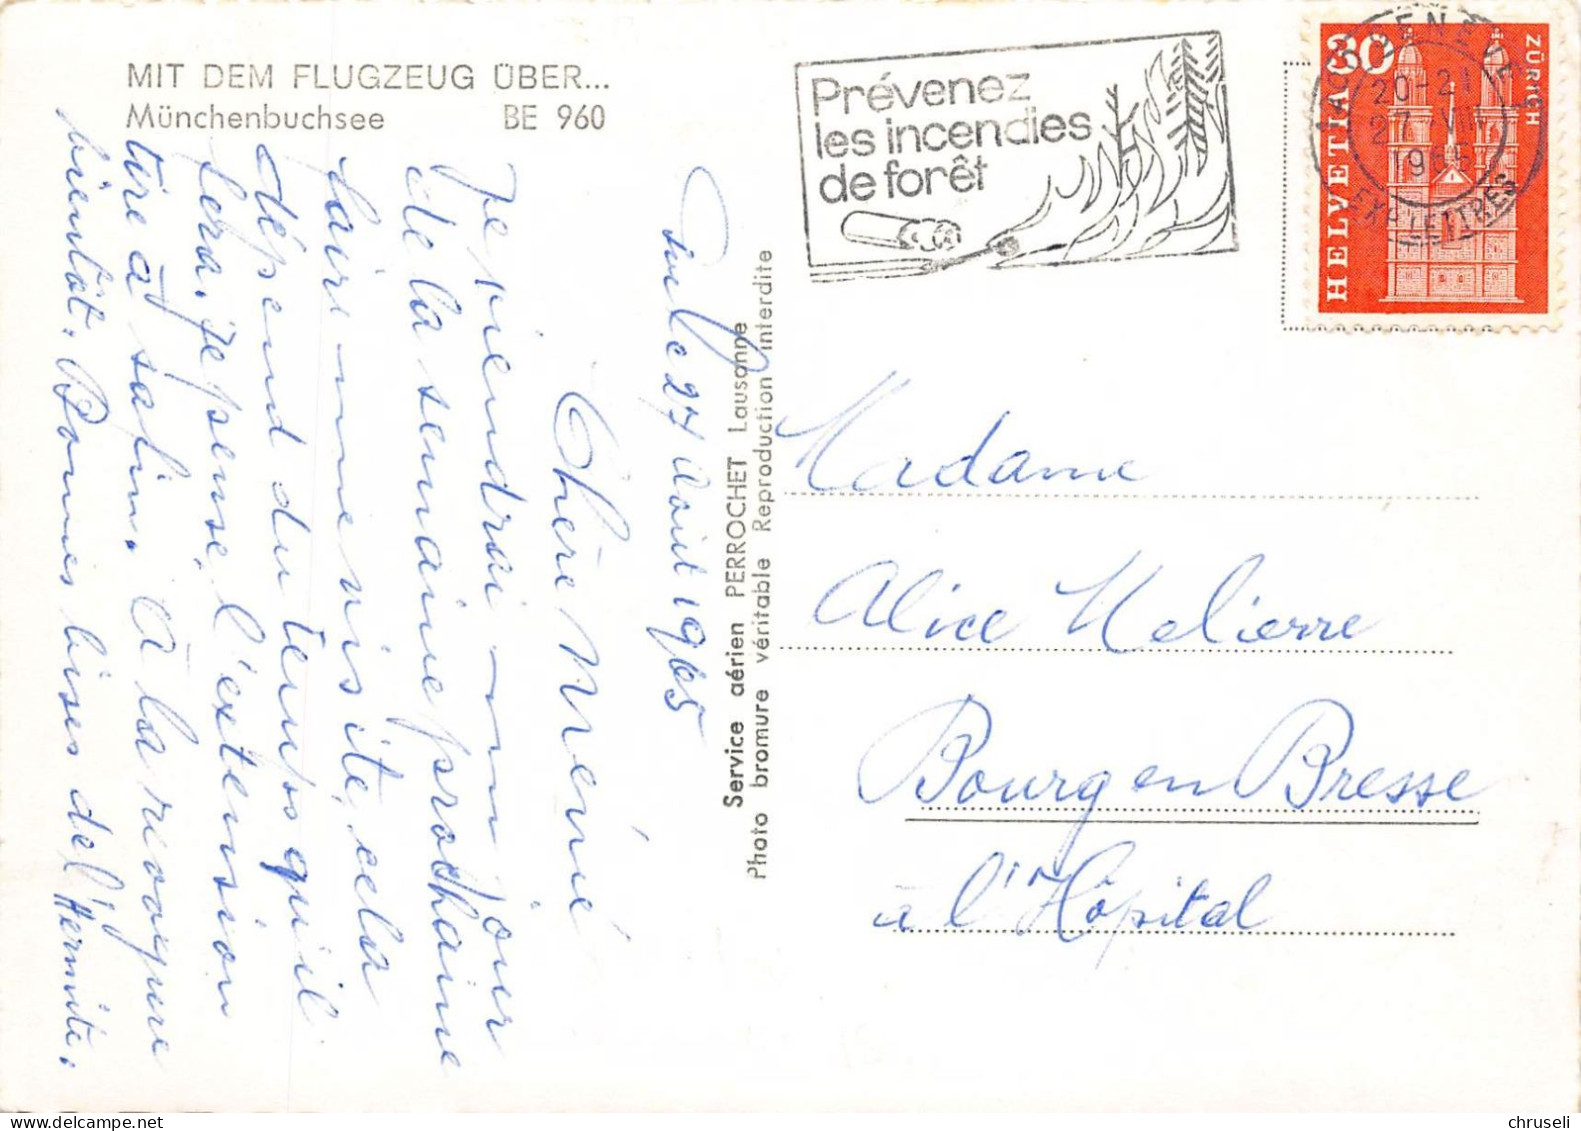 MIT DEM FLUGZEUG ÜBER...
Münchenbuchsee BE 960
le 27 Août 1965
Chère Néné
Je viendrai un jour
de la semaine prochaine
faire une visite, cela
dépend du temps qu'il
fera. Je pense, l'extension
tire à sa fin. À la revoyure
bientôt. Bonnes bises de l'Hermite.
Service aérien PERROCHET Lausanne
Photo bromure véritable Reproduction interdite
Prévenez
les incendies
de forêt
30
ZÜRICH
HELVETIA
20-21
27 VIII
1965
EXP. LETTRES
Madame
Alice Melierre
Bourg en Bresse
à l'Hôpital
chruseli